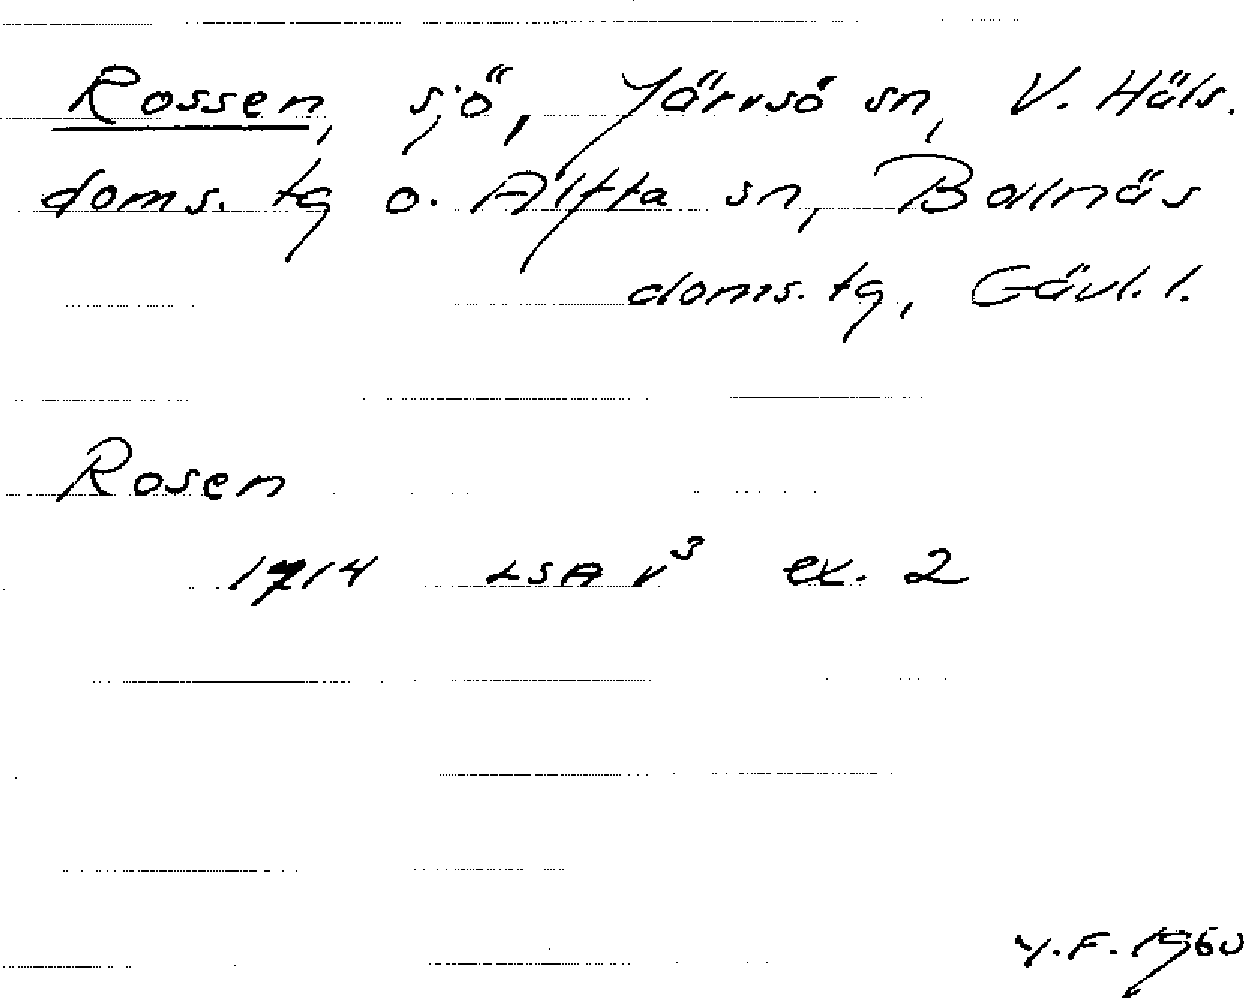 Rossen, sjö, Järvsö sn, V. Häls.
doms. tg o. Alfta sn, Bolnäs
doms. tg, Gävl. l.
Rosen
1714 LSA v³ ex. 2
Y.F. 1960